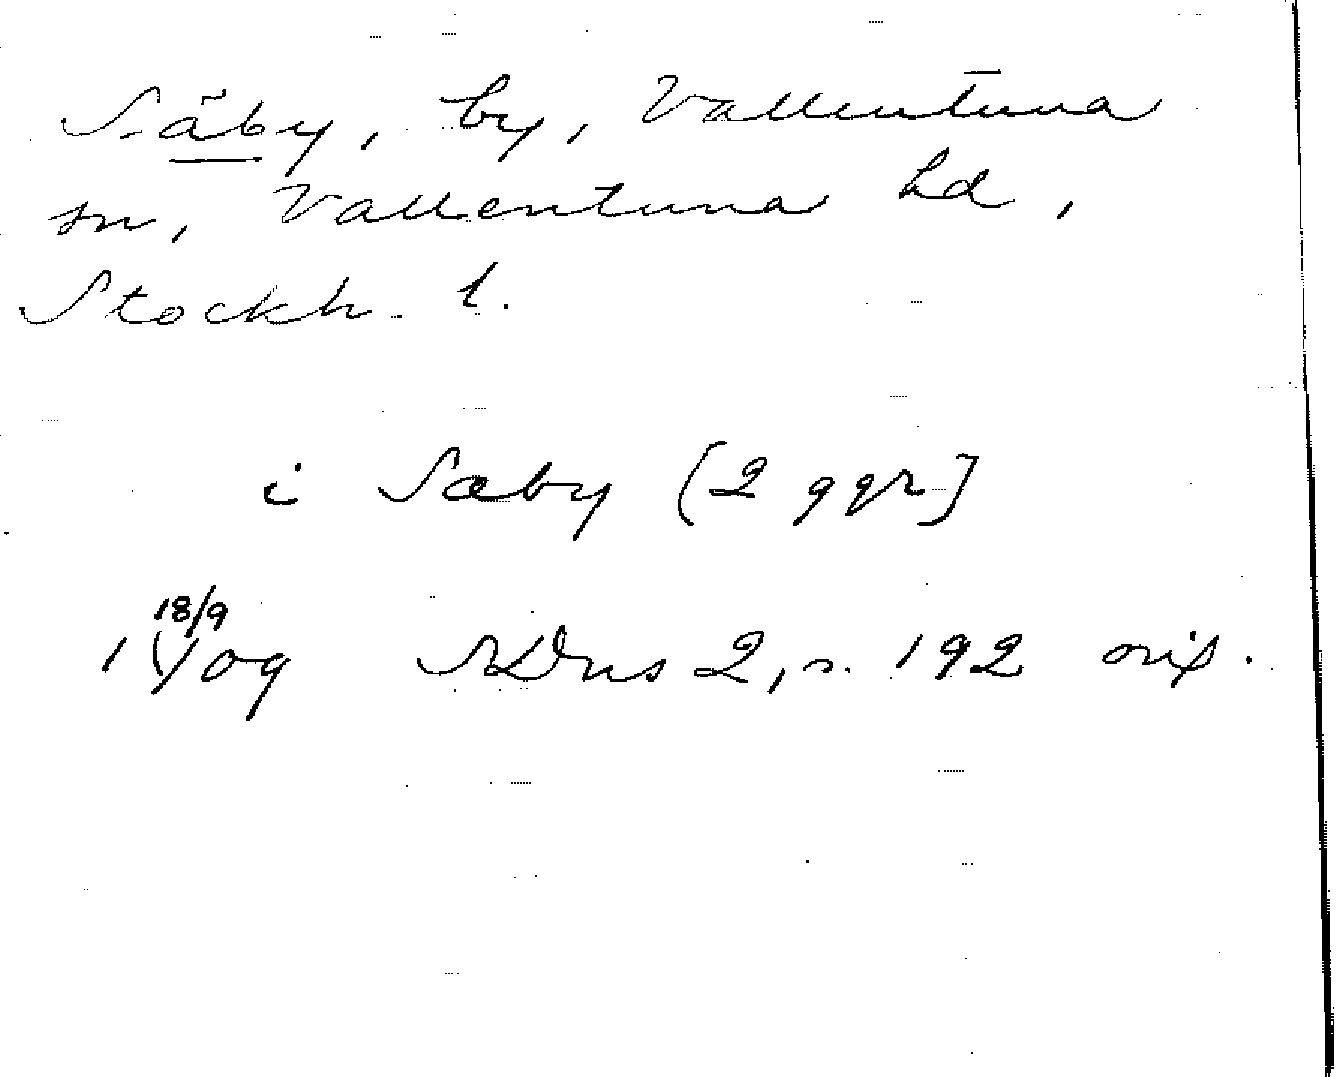 Säby, by, Vallentuna
sn, Vallentuna hd,
Stockh. l.
i Sæby (2 ggr]
18/9
1409 SDns 2, s. 192 orig.